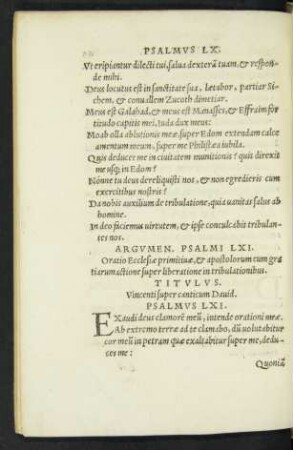 PSALMVS LX.
Vt eripiantur dilecti tui, salus dexterā tuam, & respon
de mihi.
Deus locutus est in sanctitate sua, lætabor, partiar Si-
chem, & conuallem Zucoth dimetiar.
Meus est Galahad, & meus est Manasses, & Effraim for
titudo capitis mei, Iuda dux meus:
Moab olla ablutionis meæ super Edom extendam calce
amentum meum, super me Philistæa iubila.
Quis deducet me in ciuitatem munitionis? quis direxit
me usq; in Edom?
Nónne tu deus dereliquisti nos, & non egredieris cum
exercitibus nostris?
Da nobis auxilium de tribulatione, quia uanitas salus ab
homine.
In deo faciemus uirtutem, & ipse conculcabit tribulan-
tes nos.
ARGVMEN. PSALMI LXI.
Oratio Ecclesiæ primitiuæ, & apostolorum cum gra
tiarum actione super liberatione in tribulationibus.
TITVLVS.
Vincenti super canticum Dauid.
PSALMVS LXI.
EXaudi deus clamorē meū, intende orationi meæ.
Ab extremo terræ ad te clamabo, dū uolutabitur
cor meū in petram quæ exaltabitur super me, dedu-
ces me:
Quoniā